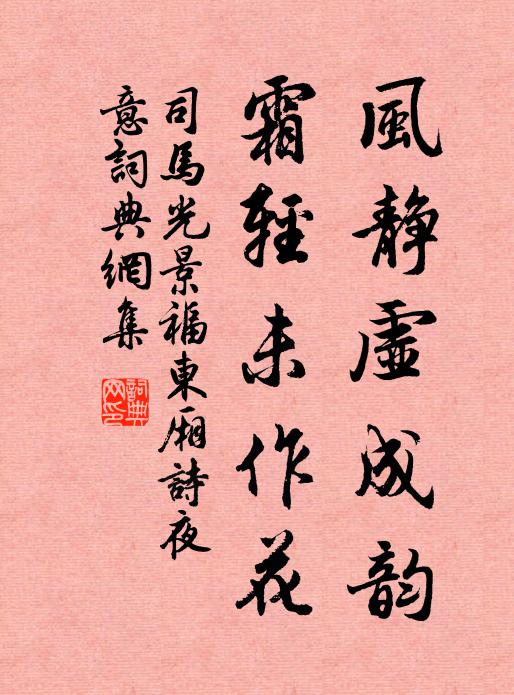 風静虛成韵
霜輕未作花
司馬光景福東厢詩夜
意詞典網集
詞典
网印